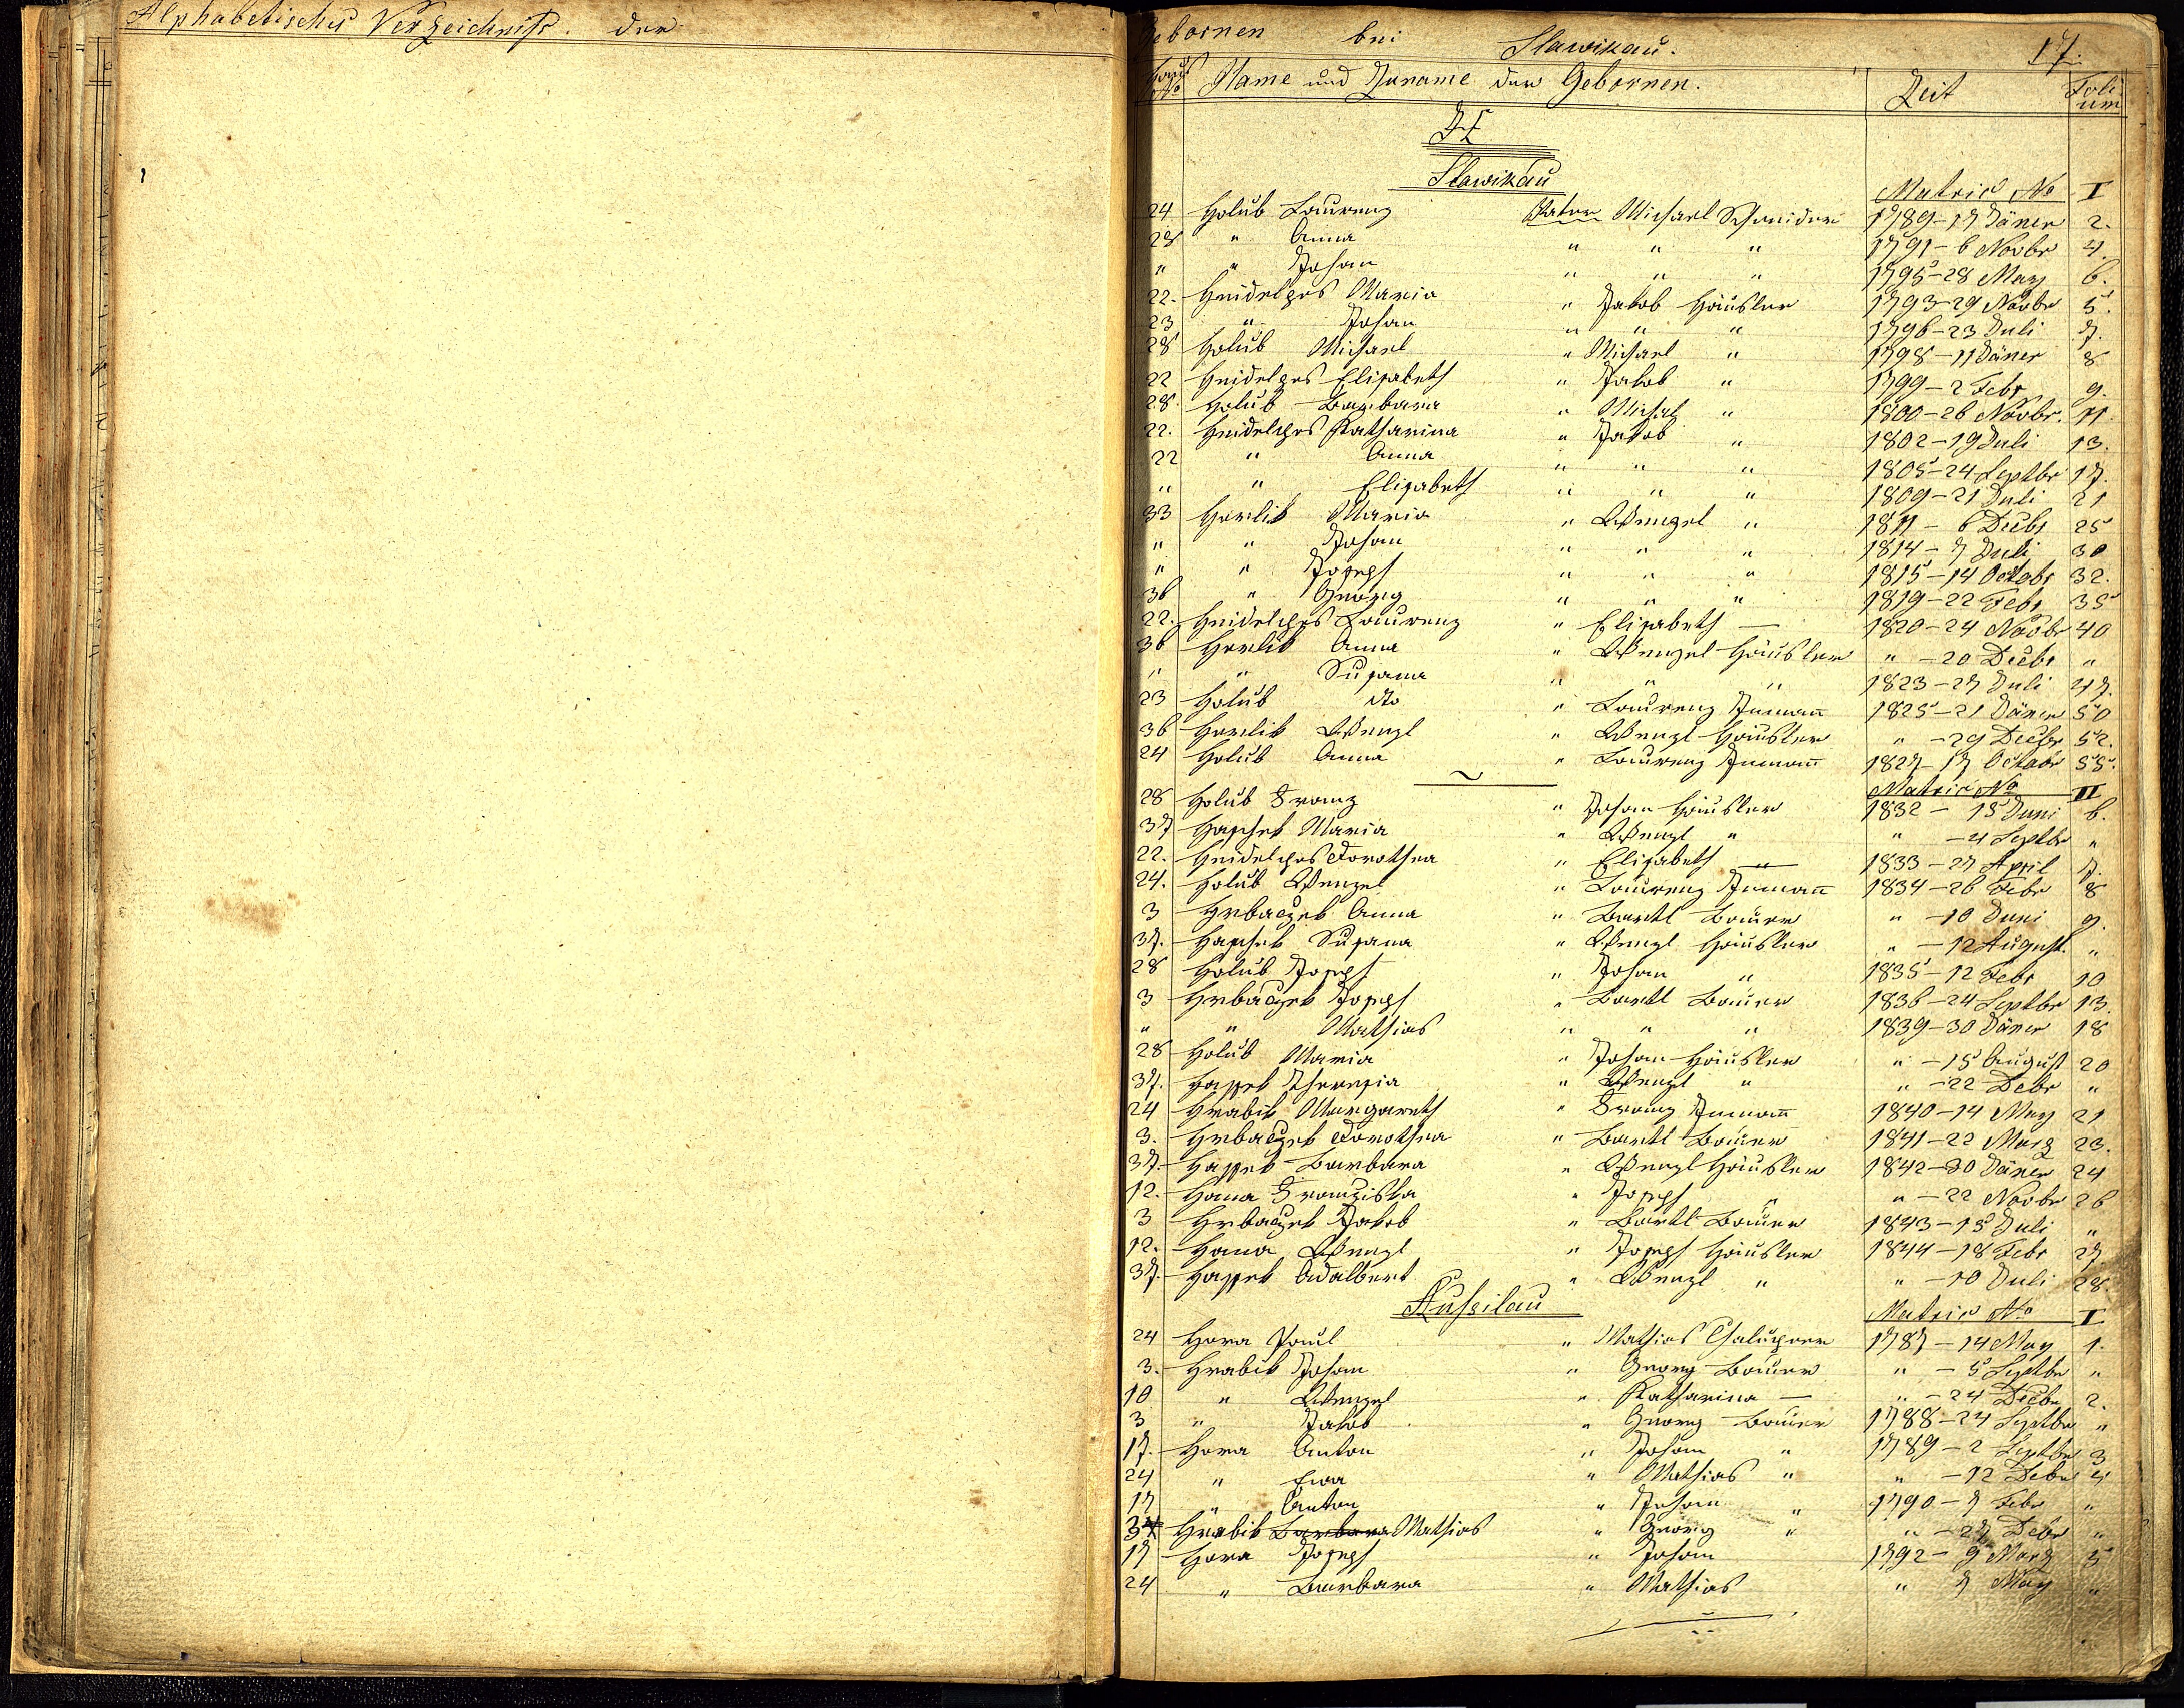 Alphabetisches Verzeichniß der
Gebornen bei Slawikau. 17.
Haus No Name und Zuname der Gebornen. Zeit Foli-um
H
Slawikau
Matric No I
24 Holub Laurenz Vater Michael Schneider 1789-17 Jäner 2.
28 " Anna " " " 1791-6 Novbr 4.
" " Johan " " " 1795-28 May 6.
22. Heidelges Maria " Jakob Häusler 1793-29 Novbr 5.
23 " Johan " " " 1796-23 Juli 7.
28 Holub Michael " Michael " 1798-11 Jäner 8
22 Heidelges Elisabeth " Jakob " 1799-2 Febr 9.
28. Holub Barbara " Michal " 1800-26 Novbr. 11
22. Heidelges Katharina " Jakob " 1802-19 Juli 13.
22 " Anna " " " 1805-24 Septbr 17.
" " Elisabeth " " " 1809-21 Juli 21
33 Horlik Maria " Wenzel " 1811-6 Decbr 25
" " Johan " " " 1814-7 Juli 30
" " Joseph " " " 1815-14 Octobr 32.
36 " Georg " " " 1819-22 Febr 35
22. Heidelges Laurenz " Elisabeth — 1820-24 Novbr 40
36 Horlik Anna " Wenzel Häusler " -20 Decbr "
" " Susana " " " 1823-27 Juli 47.
23 Holub dto " Laurenz Inmann 1825-21 Jäner 50
36 Horlik Wenzl " Wenzl Häusler " -29 Decbr 52.
24 Holub Anna " Laurenz Inmann 1827-17 Octobr 55.
Matric No II
28 Holub Franz " Johan Häusler 1832-15 Juni 6.
37 Haschek Maria " Wenzl " " -4 Septbr "
22. Heidelges Dorothea " Elisabeth — 1833-27 April 7.
24. Holub Wenzel " Laurenz Inmann 1834-26 Febr 8
3 Hrbaczek Anna " Bartl Bauer " -10 Juni 9.
37. Haschek Susana " Wenzl Häusler " -12 August "
28 Holub Joseph " Johan " 1835-12 Febr 10
3 Hrbaczek Joseph " Bartl Bauer 1836-24 Septbr 13.
" " Mathias " " " 1839-30 Jäner 18
28 Holub Maria " Johan Häusler " -15 August 20
37. Haschek Theresia " Wenzl " " -22 Debr "
24 Hrabik Margareth " Franz Inmann 1840-14 May 21
3. Hrbaczek Dorothea " Bartl Bauer 1841-22 März 23.
37. Haschek Barbara " Wenzl Häusler 1842-30 Jäner 24
12. Hana Franziska " Joseph " " -22 Novbr 26
3 Hrbaczek Jakob " Bartl Bauer 1843-15 Juli "
12. Hana Wenzl " Joseph Häusler 1844-18 Febr 27.
37. Haschek Adalbert " Wenzl " " -10 Juli 28.
Matric No I
24 Hora Paul " Mathias Chaluppner 1787-14 May 1.
3. Hrabik Johan " Georg Bauer " -5 Septbr "
10 " Wenzel " Katharina — " -24 Decbr 2.
3 " Jakob " Georg Bauer 1788-24 Septbr "
17. Hora Anton " Johan " 1789-2 Septbr 3
24 " Ewa " Mathias " " -12 Debr 4
17 " Anton " Johan " 1790-7 Febr "
3 Hrabik Barbara Mathias " Georg " " -27 Debr "
17 Hora Joseph " Johan 1792-9 März 5
24 " Barbara " Mathias " 7 May "